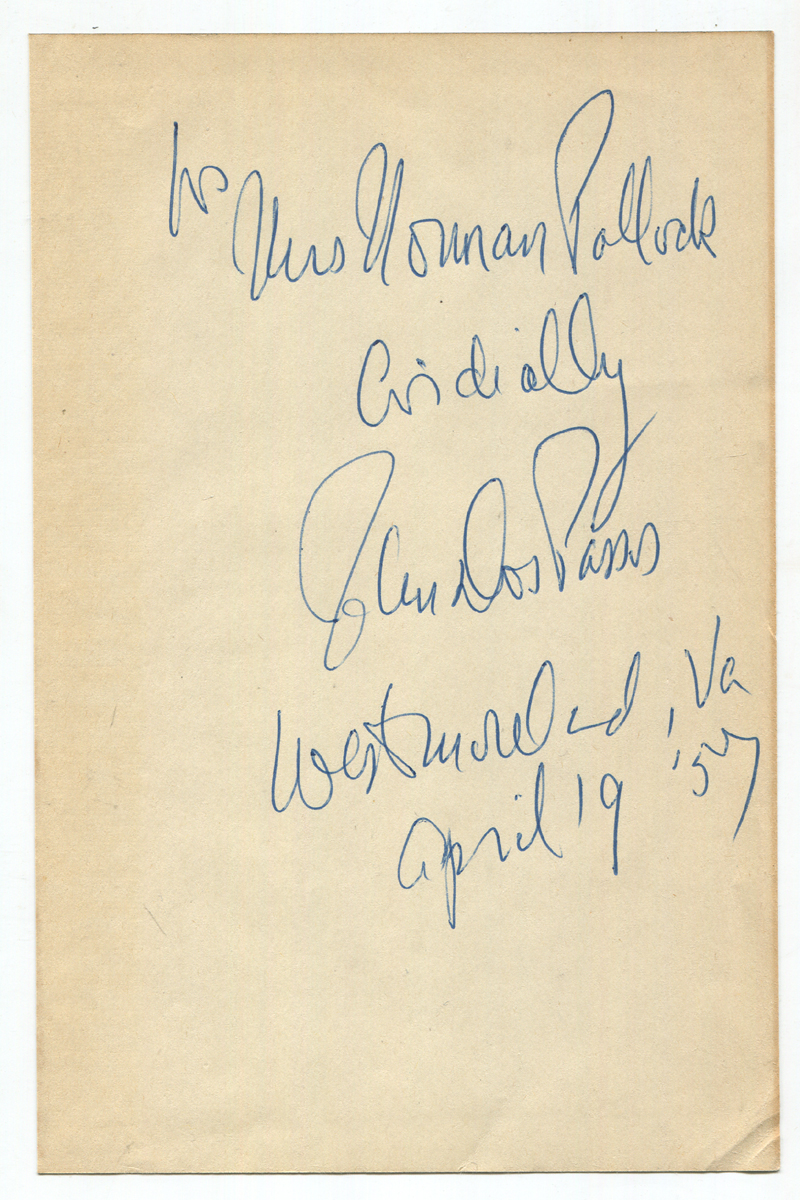 to
Mrs Norman Pollock
Cordially
John Dos Passos
Westmoreland, Va
April 19 '57